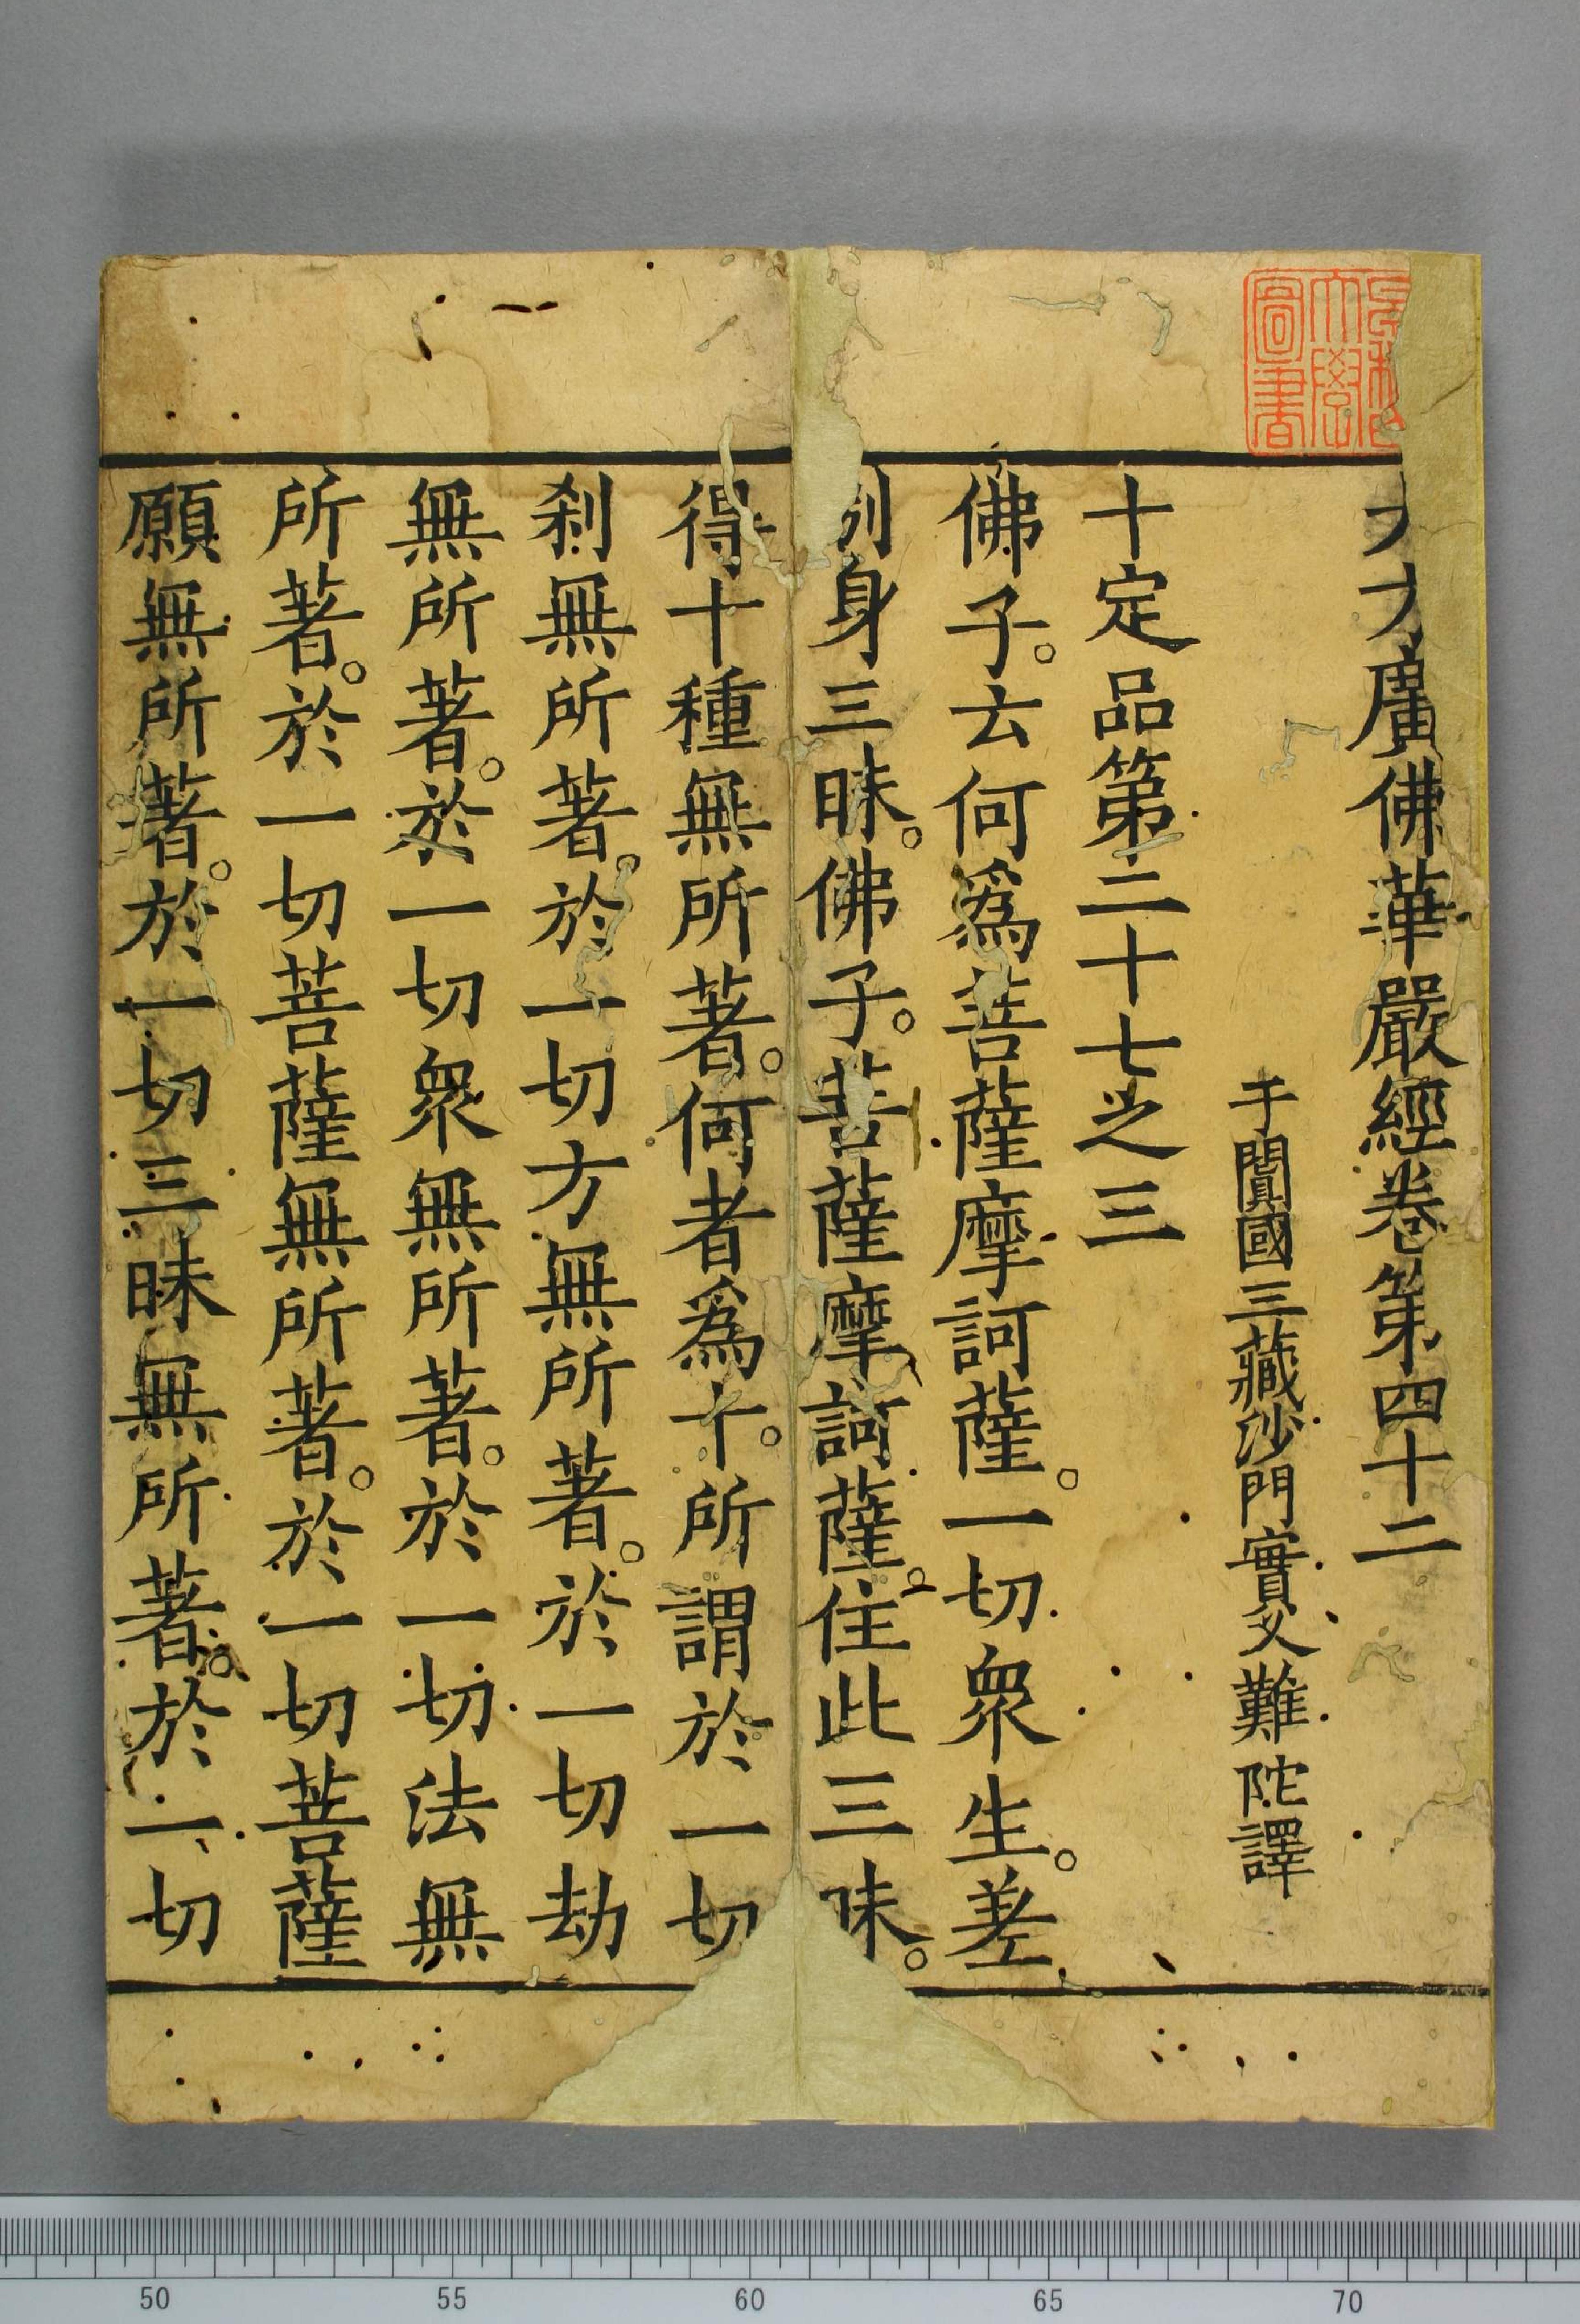 大方廣佛華嚴經卷第四十二
于闐國三藏沙門實叉難陀譯
十定品第二十七之三
佛子。云何爲菩薩摩訶薩。一切衆生。差
別身三昧。佛子。菩薩摩訶薩。住此三昧。
得十種無所著。何者爲十。所謂於一切
刹無所著。於一切方無所著。於一切劫
無所著。於一切衆無所著。於一切法無
所著。於一切菩薩無所著。於一切菩薩
願無所著。於一切三昧無所著。於一切
大學
圖書
50 55 60 65 70